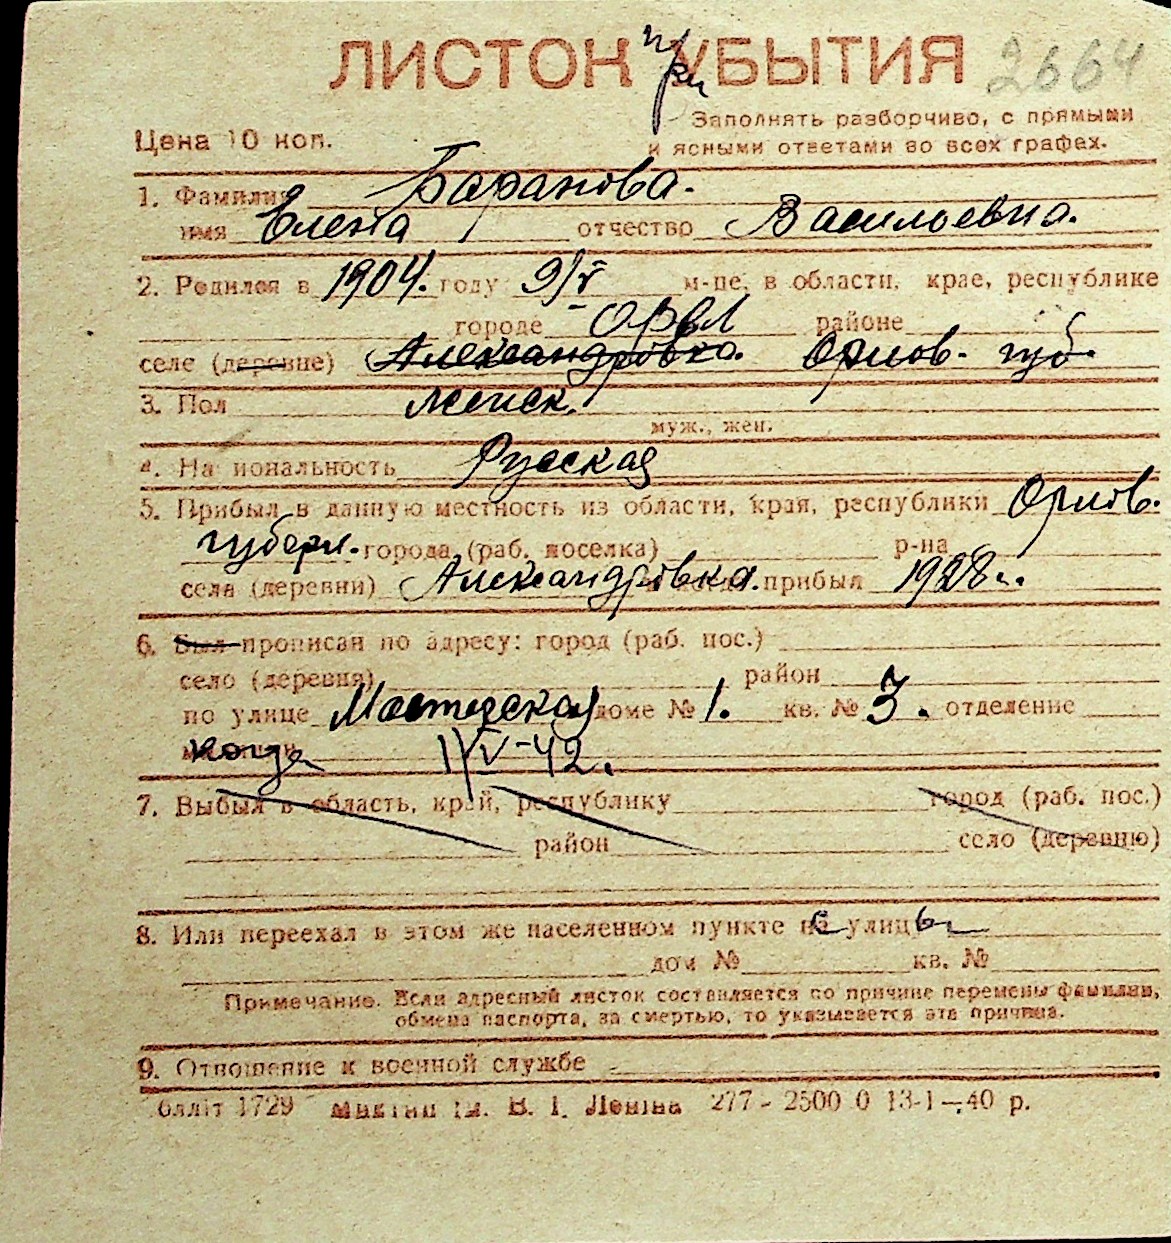 ЛИСТОК УБЫТИЯ 2664
при
Цена 10 коп.
Заполнять разборчиво, с прямыми
и ясными ответами во всех графах.
1. Фамилия Баранова.
имя Елена отчество Васильевна.
2. Родился в 1904. году 9/V м-це, в области, крае, республике
городе Орел районе
селе (деревне) Александровка. Орлов. губ.
3. Пол женск.
муж., жен.
4. Национальность Русская
5. Прибыл в данную местность из области, края, республики Орлов.
губерн. города (раб. поселка) р-на
села (деревни) Александровка. прибыл 1928 г.
6. Был прописан по адресу: город (раб. пос.)
село (деревня) район
по улице Мастерская доме № 1. кв. № 3. отделение
когда 1/V-42.
7. Выбыл в область, край, республику город (раб. пос.)
район село (деревню)
8. Или переехал в этом же населенном пункте с улицы
дом № кв. №
Примечание. Если адресный листок составляется по причине перемены фамилии,
обмена паспорта, за смертью, то указывается эта причина.
9. Отношение к военной службе
блліт 1729 ім. В. І. Леніна 277 - 2500 0 13-1-40 р.